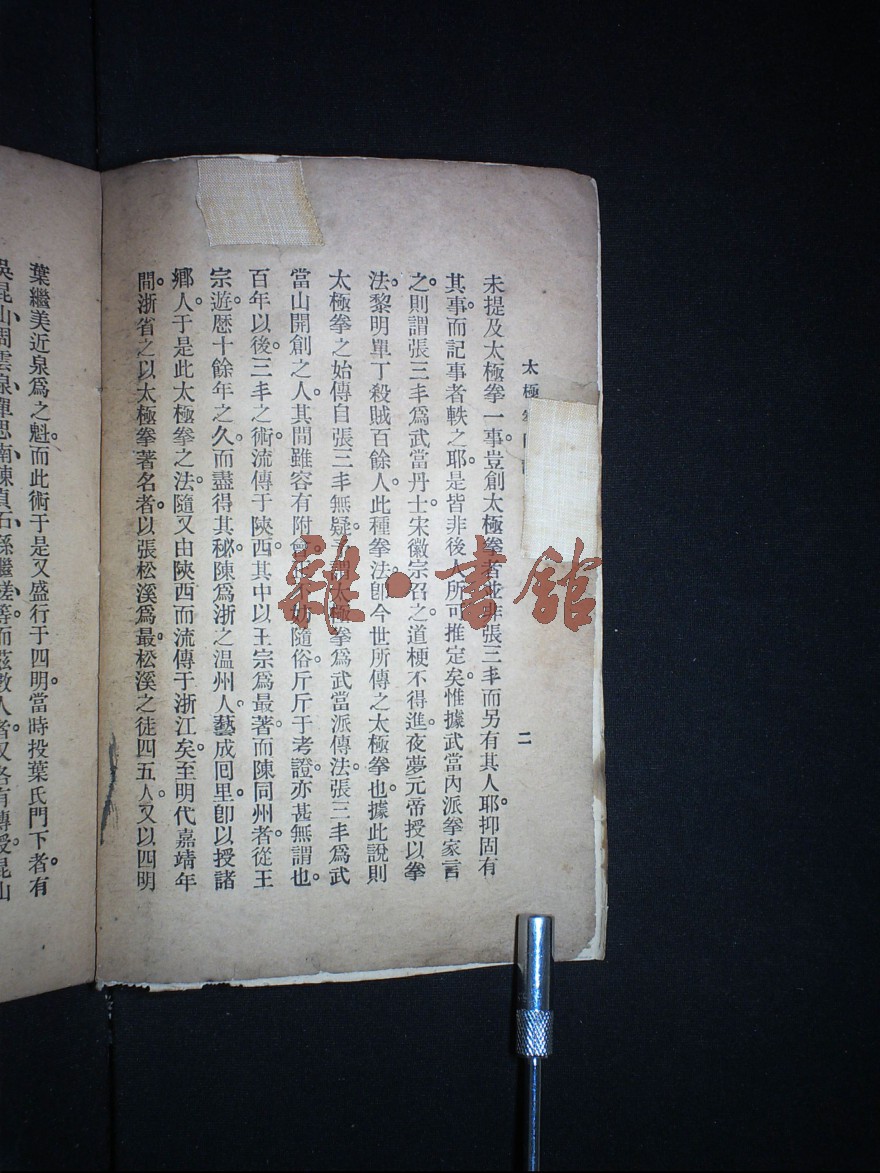 太極拳
二
未提及太極拳一事。豈創太極拳者並非張三丰而另有其人耶。抑固有
其事。而記事者軼之耶。是皆非後人所可推定矣。惟據武當內派拳家言
之。則謂張三丰爲武當丹士。宋徽宗召之。道梗不得進。夜夢元帝授以拳
法。黎明單丁殺賊百餘人。此種拳法。卽今世所傳之太極拳也。據此說則
太極拳之始傳自張三丰無疑。謂太極拳爲武當派傳法。張三丰爲武
當山開創之人。其間雖容有附會。不妨隨俗。斤斤于考證。亦甚無謂也。
百年以後。三丰之術。流傳于陝西。其中以王宗爲最著。而陳同州者。從王
宗遊。歷十餘年之久。而盡得其秘。陳爲浙之温州人。藝成囘里。卽以授諸
鄉人。于是此太極拳之法。隨又由陝西而流傳于浙江矣。至明代嘉靖年
間。浙省之以太極拳著名者。以張松溪爲最。松溪之徒四五人。又以四明
葉繼美近泉爲之魁。而此術于是又盛行于四明。當時投葉氏門下者。有
吳昆山、周雲泉、單思南、陳貞石、孫繼槎等。而茲數人者。又各有傳授。昆山
雜·書館